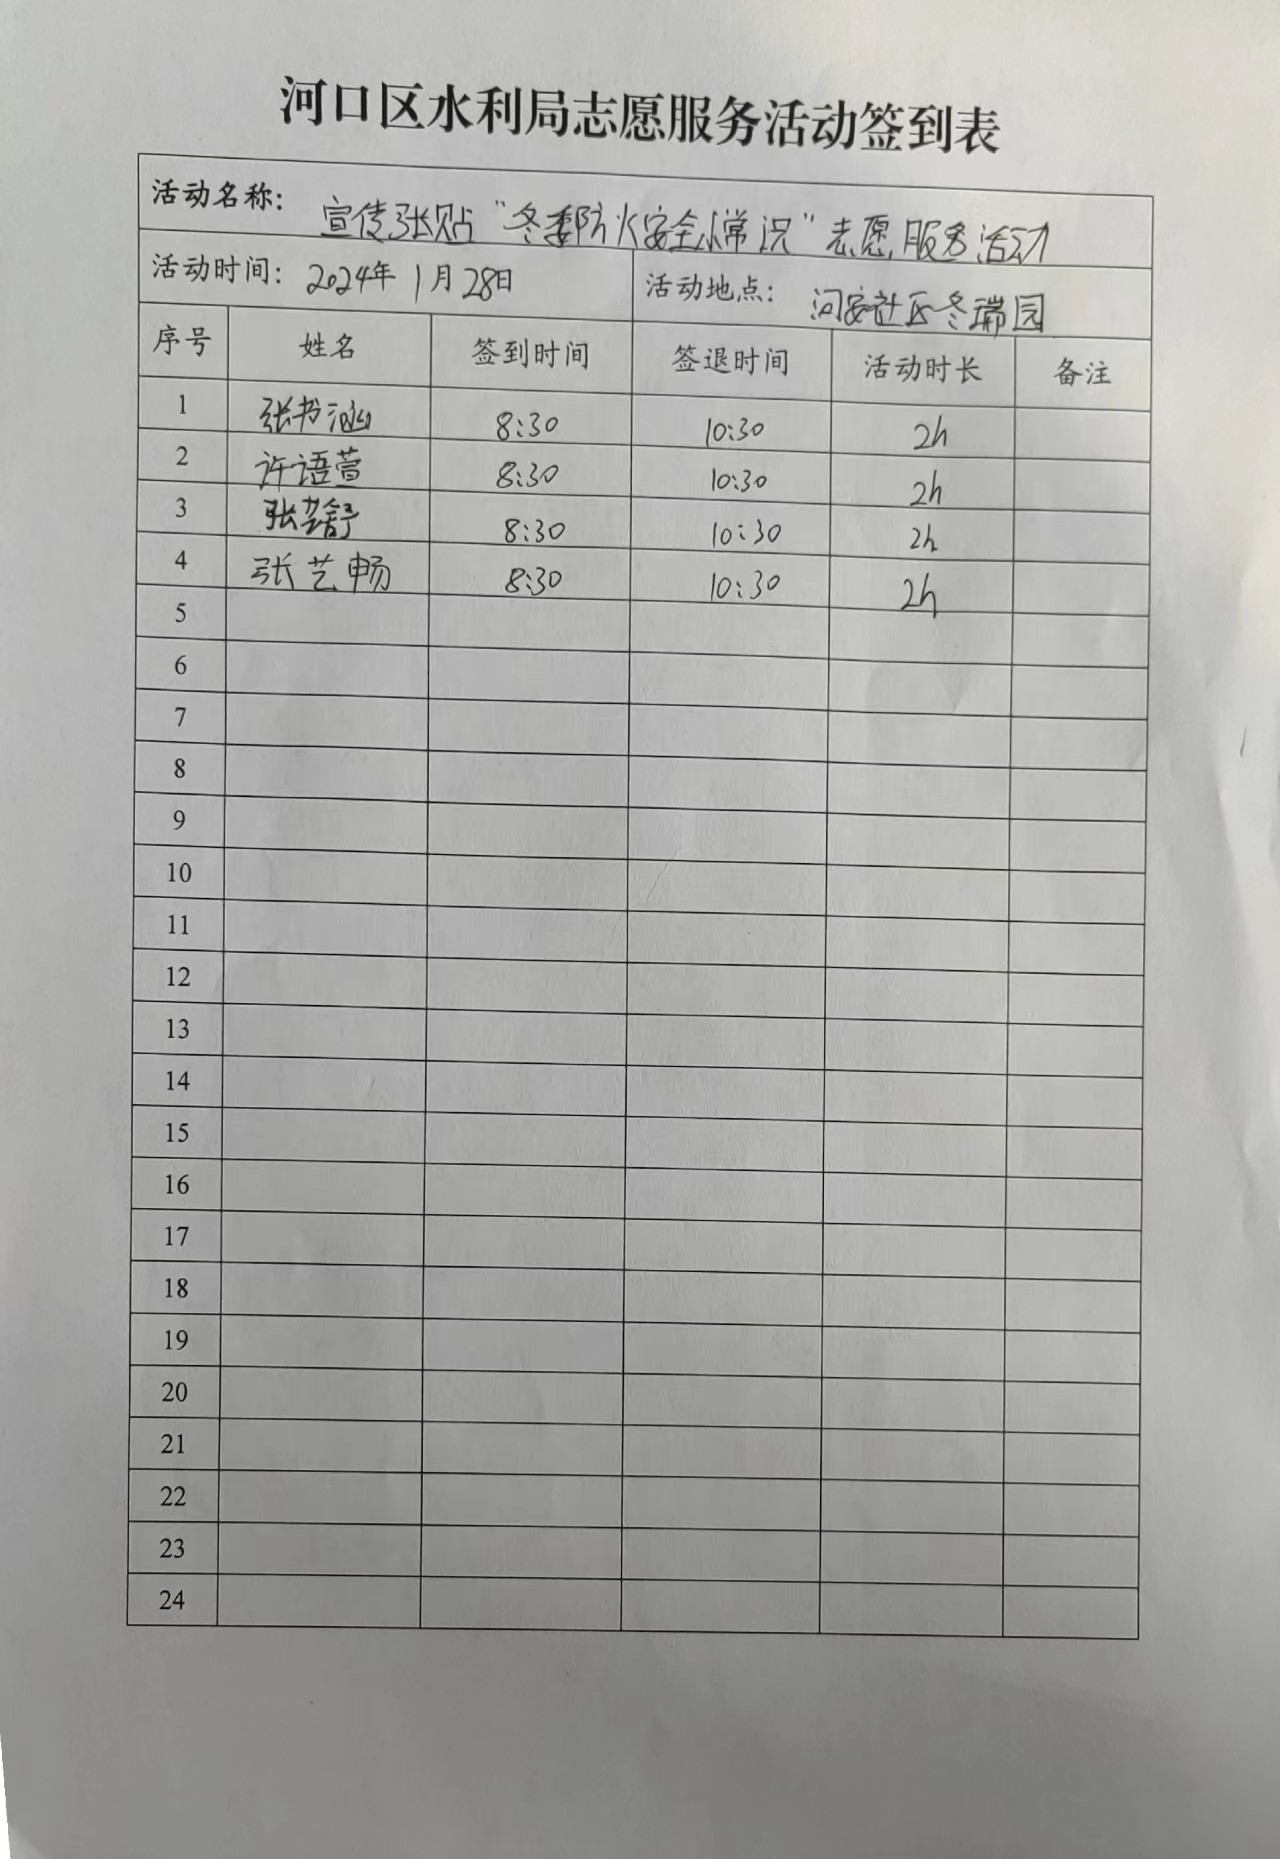 河口区水利局志愿服务活动签到表
活动名称： 宣传张贴“冬季防火安全小常识”志愿服务活动
活动时间： 2024年1月28日 活动地点： 河安社区冬瑞园
序号 姓名 签到时间 签退时间 活动时长 备注
1 张书涵 8:30 10:30 2h
2 许语萱 8:30 10:30 2h
3 张芸舒 8:30 10:30 2h
4 张艺畅 8:30 10:30 2h
5
6
7
8
9
10
11
12
13
14
15
16
17
18
19
20
21
22
23
24